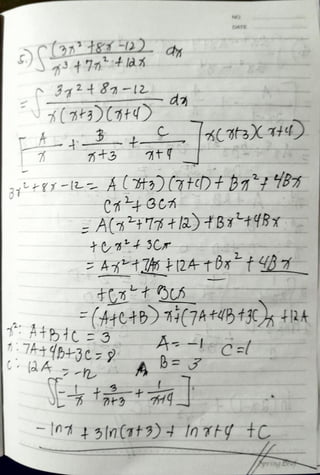 NO.
DATE
5.) ∫ (3x² + 8x - 12) / x³ + 7x² + 12x dx
= ∫ 3x² + 8x - 12 / x(x+3)(x+4) dx
[A/x + B/x+3 + C/x+4] x(x+3)(x+4)
3x² + 8x - 12 = A(x+3)(x+4) + Bx² + 4Bx
Cx² + 3Cx
= A(x² + 7x + 12) + Bx² + 4Bx
+ Cx² + 3Cx
= Ax² + 7Ax + 12A + Bx² + 4Bx
+ Cx² + 3Cx
= (A+C+B)x² + (7A+4B+3C)x + 12A
x²: A+B+C = 3
x: 7A+4B+3C = 8
C: 12A = -12
A = -1
B = 3
C = 1
∫[-1/x + 3/x+3 + 1/x+4]
-lnx + 3ln(x+3) + lnx+4 + C